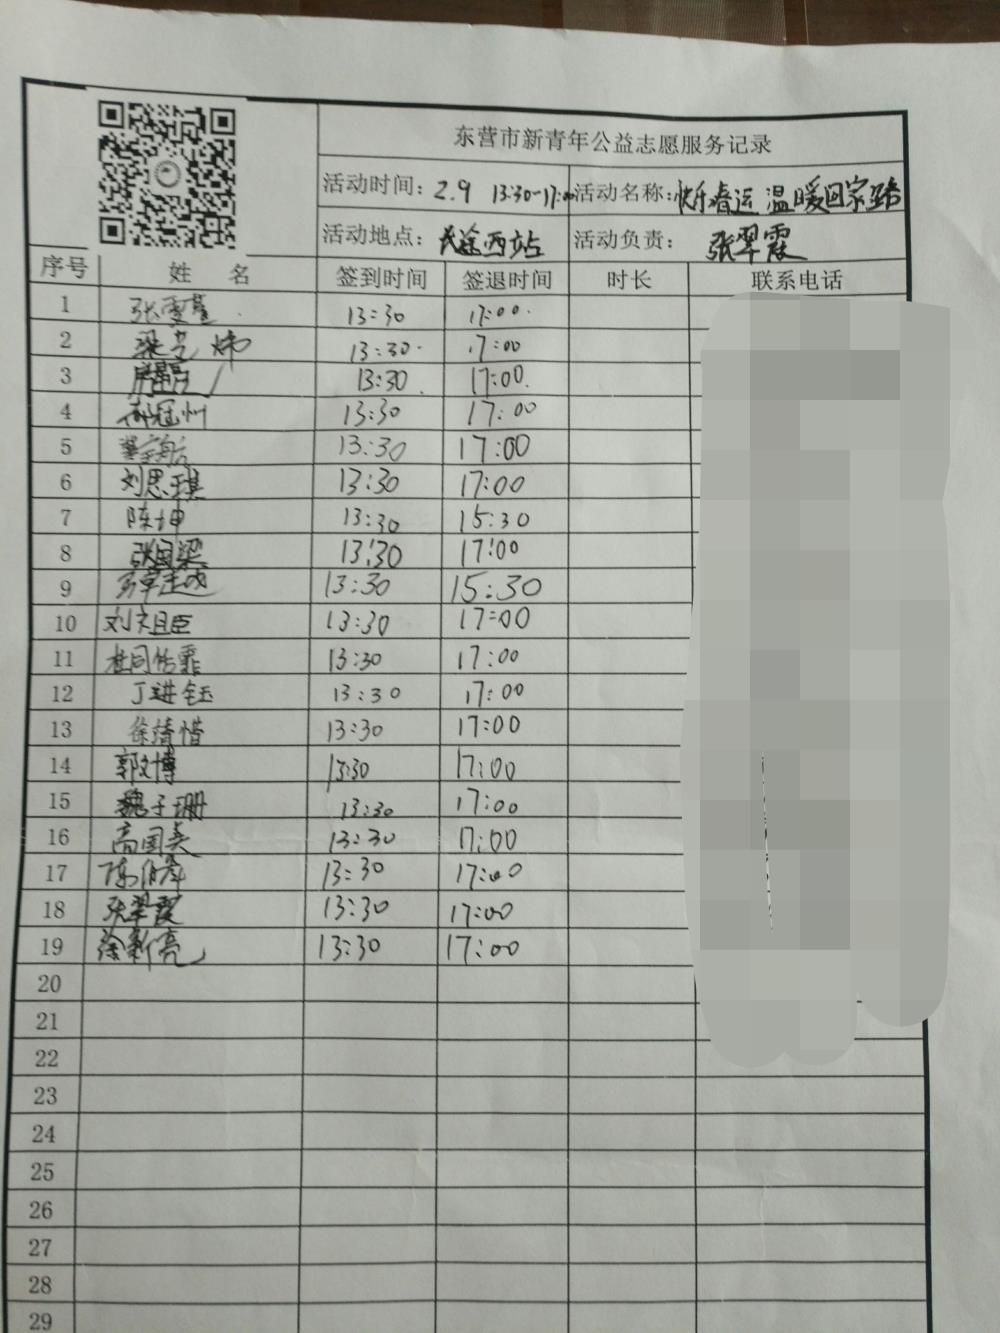 东营市新青年公益志愿服务记录
活动时间：2.9 13:30-17:00 活动名称：快乐春运 温暖回家路
活动地点：长途西站 活动负责：张翠霞
序号 姓 名 签到时间 签退时间 时长 联系电话
1 13:30 17:00
2 13:30 17:00
3 13:30 17:00
4 冠州 13:30 17:00
5 13:30 17:00
6 刘思琪 13:30 17:00
7 陈坤 13:30 15:30
8 张国梁 13:30 17:00
9 13:30 15:30
10 刘祖臣 13:30 17:00
11 杜同 13:30 17:00
12 丁进钰 13:30 17:00
13 徐清惜 13:30 17:00
14 郭文博 13:30 17:00
15 魏子珊 13:30 17:00
16 高国美 13:30 17:00
17 陈 13:30 17:00
18 张翠霞 13:30 17:00
19 徐新亮 13:30 17:00
20
21
22
23
24
25
26
27
28
29